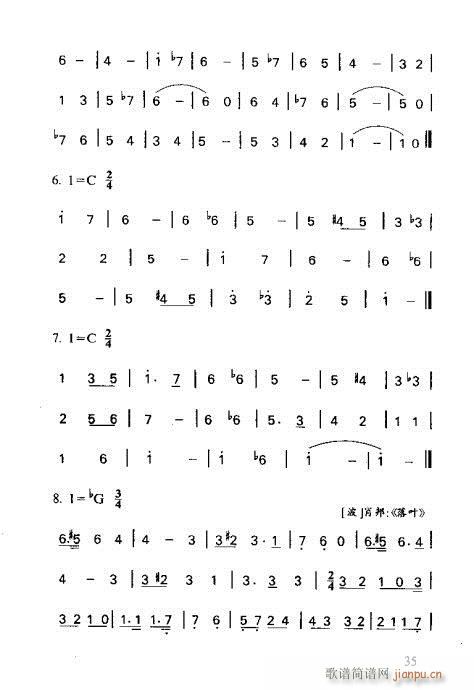 6 – | 4 – | i ♭7 | 6 – | 5 ♭7 | 6 5 | 4 – | 3 2 |
1 3 | 5 ♭7 | 6 – | 6 0 | 6 4 | ♭7 6 | 5 – | 5 0 |
♭7 6 | 5 4 | 3 4 | 5 – | 5 3 | 4 2 | 1 – | 1 0 ‖
6. 1=C 2/4
i 7 | 6 – | 6 ♭6 | 5 – | 5 #4 5 | 3 ♭3 |
2 2 | 5 – | i 7 | 6 – | 6 ♭6 |
5 – | 5 #4 5 | 3 ♭3 | 2 5 | i – ‖
7. 1=C 2/4
1 3 5 | i. 7 | 6 ♭6 | 5 – | 5 #4 | 3 ♭3 |
2 5 6 | 7 – | 6 ♭6 | 5. 3 | 4 2 | 1 1 |
1 6 | i – | i ♭6 | i – | i – ‖
8. 1=♭G 3/4
[波]肖邦:《落叶》
6.#5 6 4 | 4 – 3 | 3#2 3.1 | 7 6 0 | 6.#5 6.4 |
4 – 3 | 3#2 3 1 | 3. 3 3 | 2/4 3 2 1 0 3 |
3 2 1 0 | 1.1 1.7 | 7 6 | 5 7 2 4 | 3 4 3 2 | 2 1 1 7 |
35
歌谱简谱网
jianpu.cn